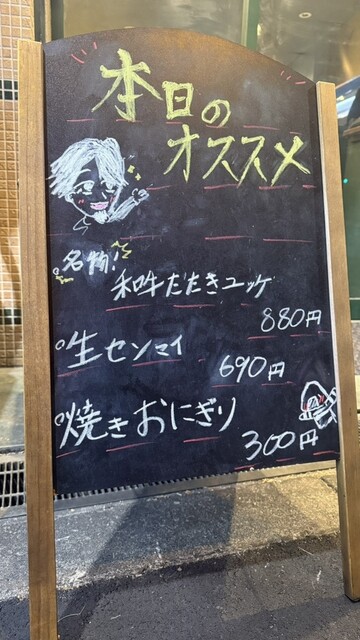 本日の
オススメ
名物!
和牛だたきユッケ
880円
○生センマイ
690円
○焼きおにぎり
300円